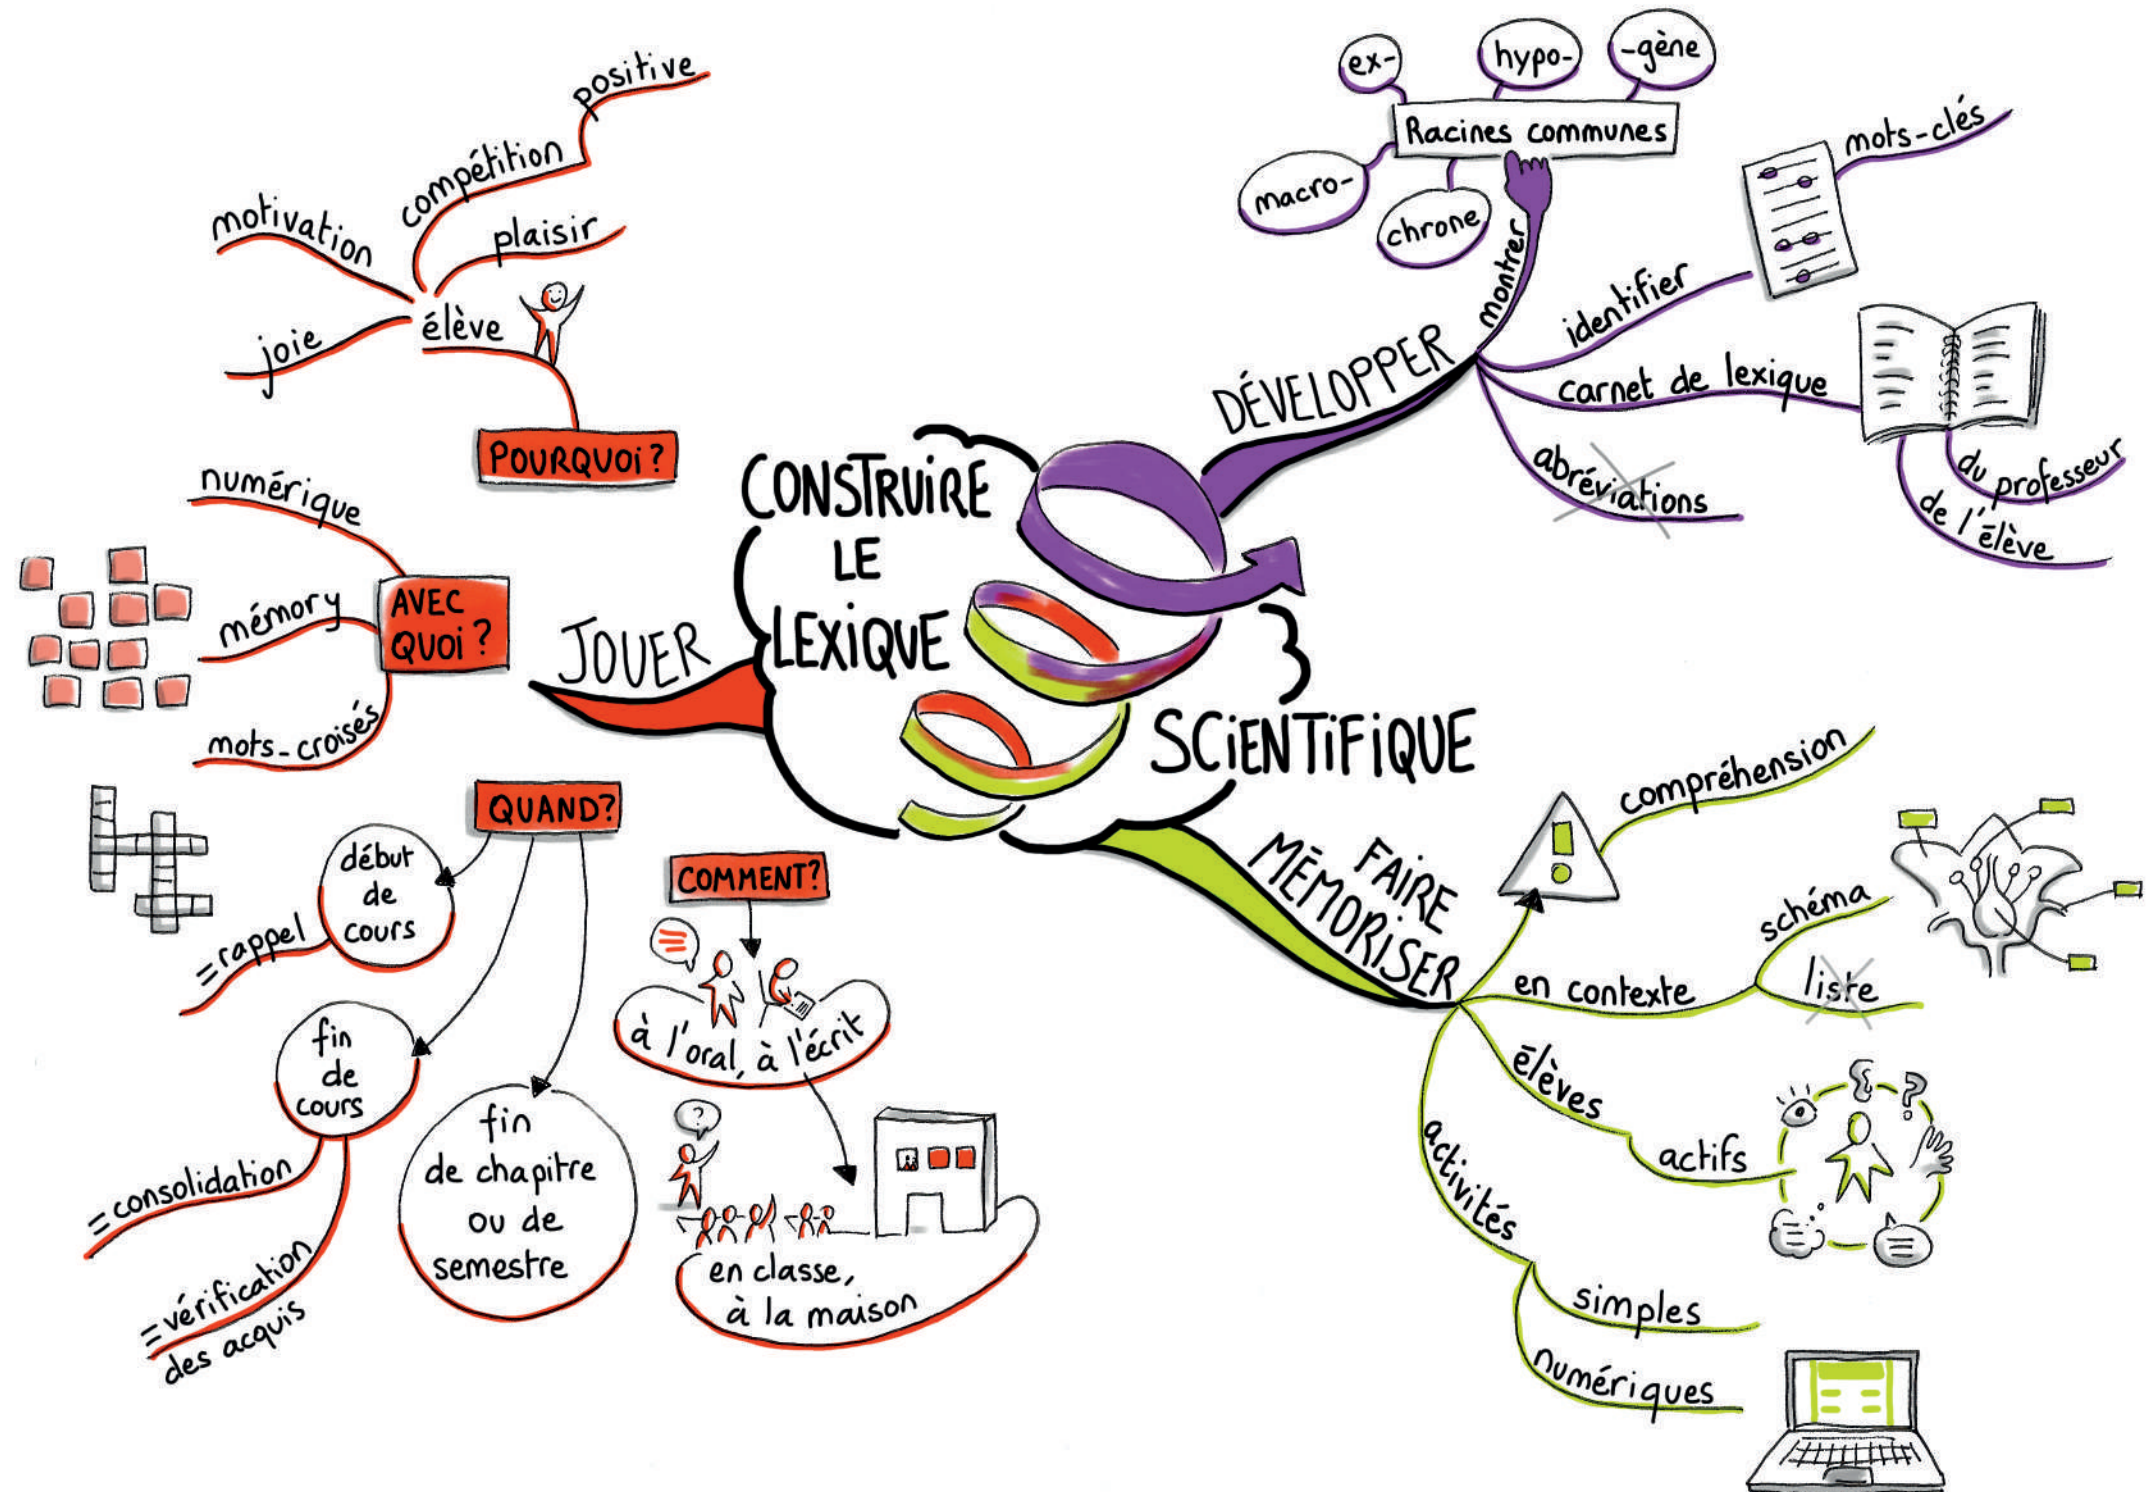 CONSTRUiRE
LE
LEXiQUE
SCiENTiFiQUE
DÉVELOPPER
montrer
Racines communes
ex-
hypo-
-gène
macro-
chrone
identifier
mots-clés
carnet de lexique
du professeur
de l'élève
abréviations
FAIRE
MÉMORISER
compréhension
en contexte
schéma
liste
élèves
actifs
?
activités
simples
numériques
JOUER
POURQUOi?
élève
compétition
positive
plaisir
motivation
joie
AVEC
QUOi?
numérique
mémory
mots-croisés
QUAND?
début
de
cours
=rappel
fin
de
cours
=consolidation
=vérification
des acquis
fin
de chapitre
ou de
semestre
COMMENT?
à l'oral, à l'écrit
?
en classe,
à la maison